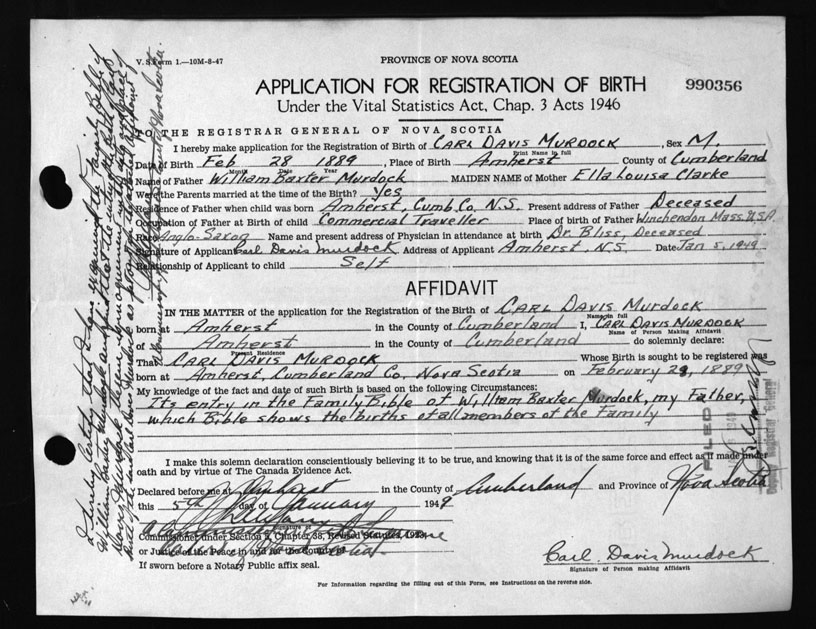 V. S. Form 1.—10M-8-47
PROVINCE OF NOVA SCOTIA
APPLICATION FOR REGISTRATION OF BIRTH
990356
Under the Vital Statistics Act, Chap. 3 Acts 1946
TO THE REGISTRAR GENERAL OF NOVA SCOTIA
I hereby make application for the Registration of Birth of CARL DAVIS MURDOCK, Sex M.
Print Name in full
Date of Birth Feb 28 1889, Place of Birth Amherst County of Cumberland
Month Date Year
Name of Father William Baxter Murdock MAIDEN NAME of Mother Ella Louisa Clarke
Were the Parents married at the time of the Birth? Yes
Residence of Father when child was born Amherst, Cumb. Co, N.S. Present address of Father Deceased
Occupation of Father at Birth of child Commercial Traveller Place of birth of Father Winchendon Mass. U.S.A.
Race Anglo-Saxon Name and present address of Physician in attendance at birth Dr. Bliss, Deceased
Signature of Applicant Carl Davis Murdock Address of Applicant Amherst, N.S. Date Jan 5, 1949
Relationship of Applicant to child Self
AFFIDAVIT
IN THE MATTER of the application for the Registration of the Birth of CARL DAVIS MURDOCK
Name in full
born at Amherst in the County of Cumberland I, CARL DAVIS MURDOCK
Name of Person Making Affidavit
of Amherst in the County of Cumberland do solemnly declare:
Present Residence
That CARL DAVIS MURDOCK Whose Birth is sought to be registered was
born at Amherst, Cumberland Co, Nova Scotia on February 28, 1889
My knowledge of the fact and date of such Birth is based on the following Circumstances:
Its entry in the Family Bible of William Baxter Murdock, my Father,
which Bible shows the births of all members of the Family
I make this solemn declaration conscientiously believing it to be true, and knowing that it is of the same force and effect as if made under
oath and by virtue of The Canada Evidence Act.
Declared before me at Amherst in the County of Cumberland and Province of Nova Scotia
this 5th day of January 1949
Signature of
Commissioner under Section 2, Chapter 38, Revised Statutes, 1923,
or Justice of the Peace in and for the County
If sworn before a Notary Public affix seal.
Carl Davis Murdock
Signature of Person making Affidavit
For Information regarding the filling out of this Form, see Instructions on the reverse side.
I hereby certify that I have examined the family Bible of
William Baxter Murdock and find that the entry of the birth of Carl
FILED
Deputy Registrar General